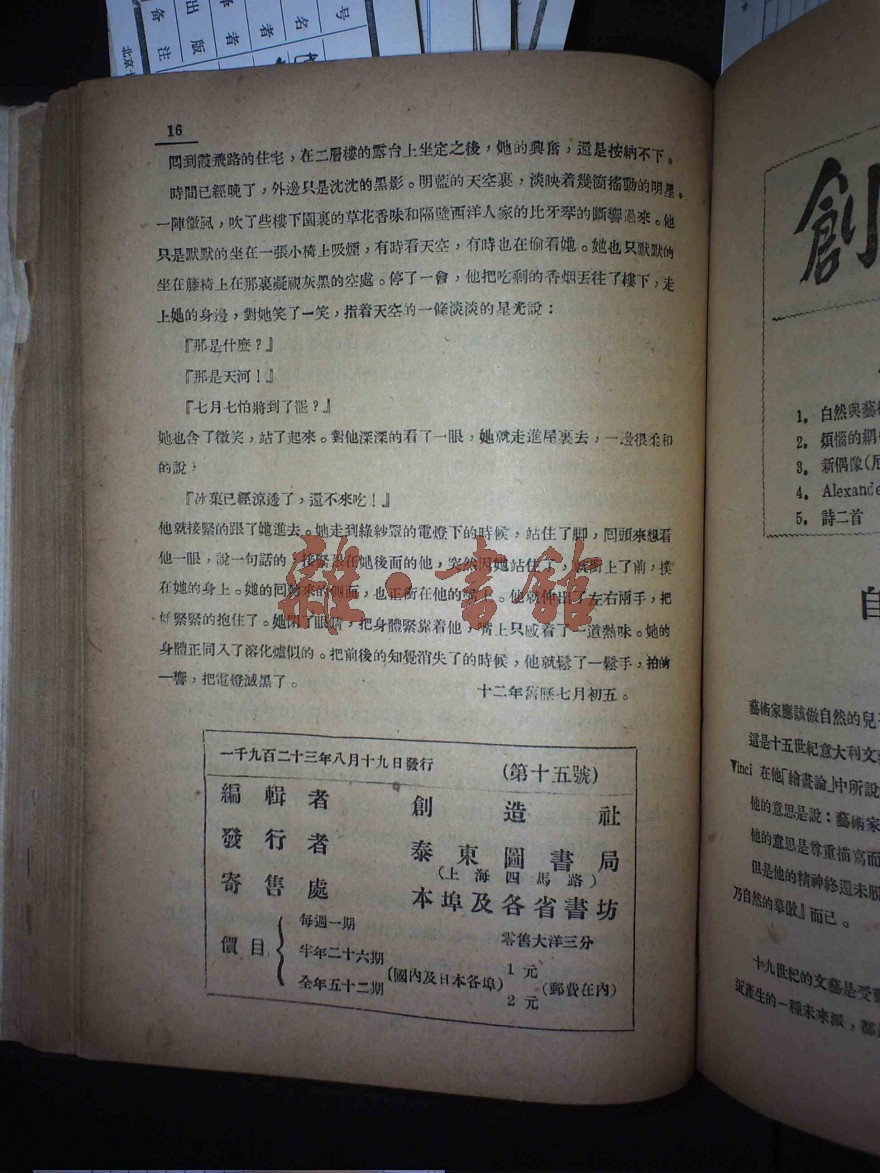 號
名
者
譯者
出版
备注
北京
16
囘到霞飛路的住宅，在二層樓的露台上坐定之後，她的興奮，還是按納不下。
時間已經晚了，外邊只是沈沈的黑影。明藍的天空裏，淡映着幾箇搖動的明星。
一陣微風，吹了些樓下園裏的草花香味和隔壁西洋人家的比牙琴的斷響過來。他
只是默默的坐在一張小椅上吸煙，有時看天空，有時也在偷看她。她也只默默的
坐在籐椅上在那裏凝視灰黑的空處。停了一會，他把吃剩的香烟丟往了樓下，走
上她的身邊，對她笑了一笑，指着天空的一條淡淡的星光說：
『那是什麼？』
『那是天河！』
『七月七怕將到了罷？』
她也含了微笑，站了起來。對他深深的看了一眼，她就走進屋裏去，一邊很柔和
的說，
『冰菓已經涼透了，還不來吃！』
他就接緊的跟了她進去。她走到綠紗罩的電燈下的時候，站住了脚，囘頭來想看
他一眼，說一句話的，接緊跟在她後面的他，突然因她站住了，就衝上了前，撲
在她的身上。她的囘轉來的側面，也正衝在他的嘴上。他就伸出了左右兩手，把
她緊緊的抱住了。她閉了眼睛，把身體緊靠着他，嘴上只感着了一道熱味。她的
身體正同入了溶化爐似的。把前後的知覺消失了的時候，他就鬆了一鬆手，拍的
一響，把電燈滅黑了。 十二年舊歷七月初五。
雜・書館
一千九百二十三年八月十九日發行 (第十五號)
編輯者 創造社
發行者 泰東圖書局
(上海四馬路)
寄售處 本埠及各省書坊
價目
每週一期 零售大洋三分
半年二十六期 1元
(國內及日本各埠) (郵費在內)
全年五十二期 2元
創
1. 自然與藝術
2. 煩惱的網
3. 新偶像
4. Alexande
5. 詩二首
自
藝術家應該做自然的兒
這是十五世紀意大利文藝
Vinci 在他「繪畫論」中所說
他的意思是說：藝術家
他的意思是尊重描寫而
但是他的精神終還未脫
乃自然的摹倣』而已。
十九世紀的文藝是受動
產生的一種未來派，都